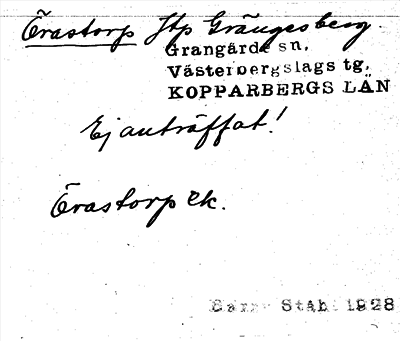 Örastorp Htp Grängesberg.
Grangärde sn,
Västerbergslags tg,
KOPPARBERGS LÄN
Ej anträffat!
Örastorp ek.
Ståhl 1928